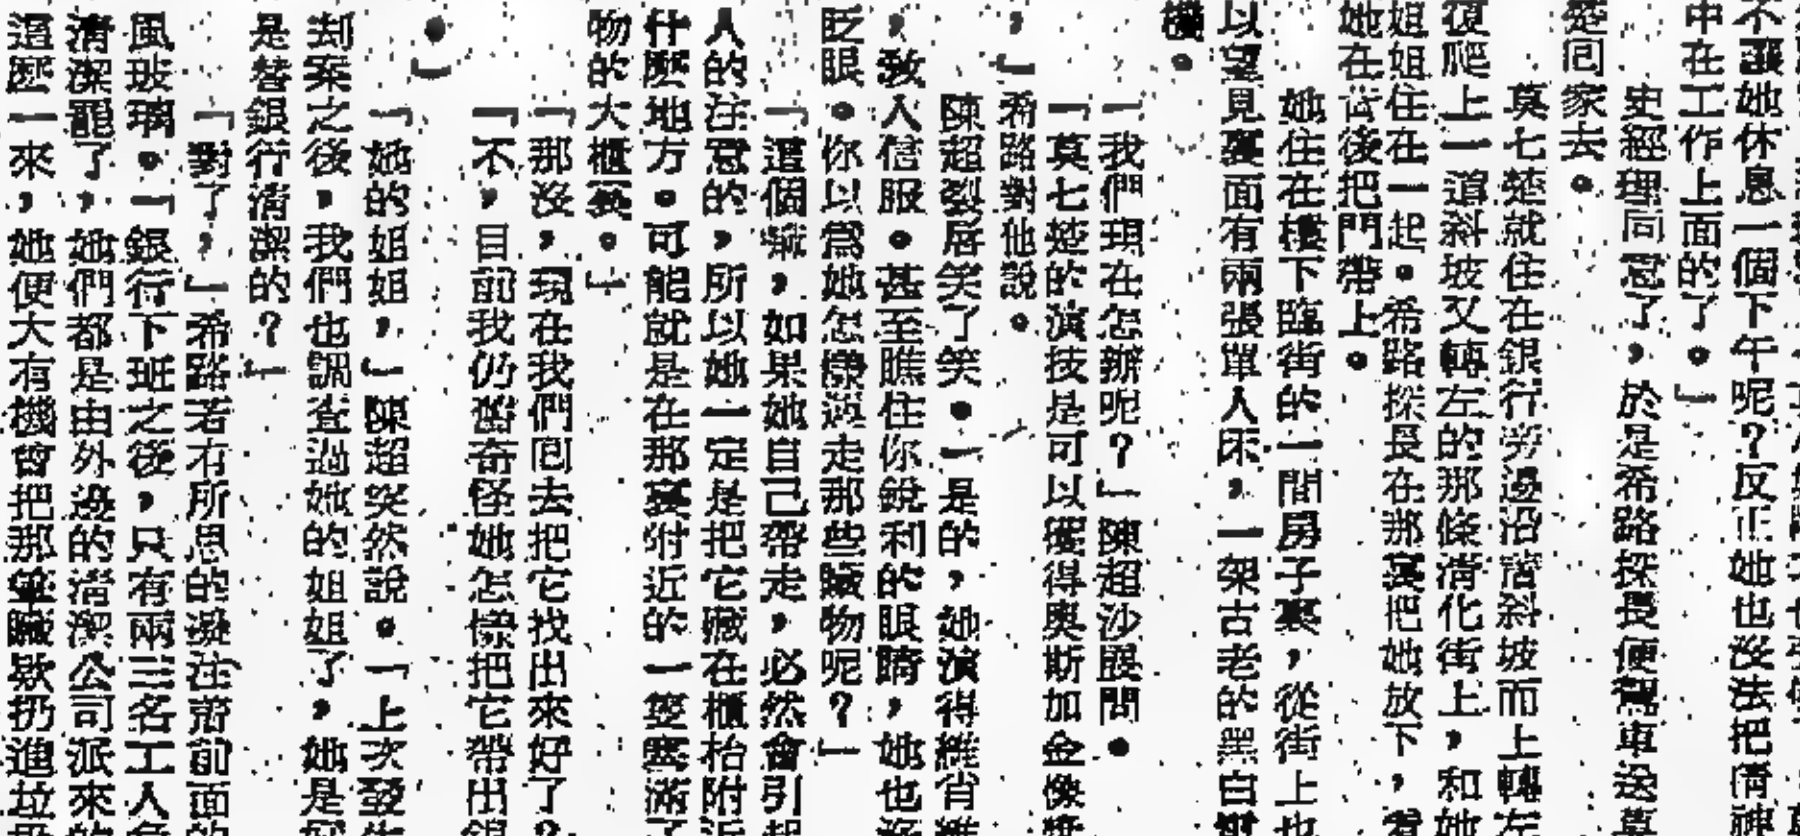 不讓她休息一個下午呢？反正她也沒法把精神
中在工作上面的了。」
史經理同意了，於是希路探長便駕車送莫
楚回家去。
莫七楚就住在銀行旁邊沿着斜坡而上轉左
復爬上一道斜坡又轉左的那條清化街上，和她
姐姐住在一起。希路探長在那裏把她放下，看
她在背後把門帶上。
她住在樓下臨街的一間房子裏，從街上也
以望見裏面有兩張單人床，一架古老的黑白電
機。
「我們現在怎辦呢？」陳超沙啞問。
「莫七楚的演技是可以獲得奧斯加金像獎
，」希路對他說。
陳超裂唇笑了笑。「是的，她演得維肖維
，教人信服。甚至瞧住你銳利的眼睛，她也
眨眼。你以為她怎樣送走那些贓物呢？」
「這個嘛，如果她自己帶走，必然會引起
人的注意的，所以她一定是把它藏在櫃枱附近
什麼地方。可能就是在那裏附近的一隻塞滿了
物的大櫃裏。」
「那沒，現在我們回去把它找出來好了？
「不，目前我仍舊奇怪她怎樣把它帶出銀
。」
「她的姐姐，」陳超突然說。「上次發生
刦案之後，我們也調查過她的姐姐了，她是
是替銀行清潔的？」
「對了，」希路若有所思的凝注着前面的
風玻璃。「銀行下班之後，只有兩三名工人
清潔罷了，她們都是由外邊的清潔公司派來的
這麼一來，她便大有機會把那筆贓欵扔進垃